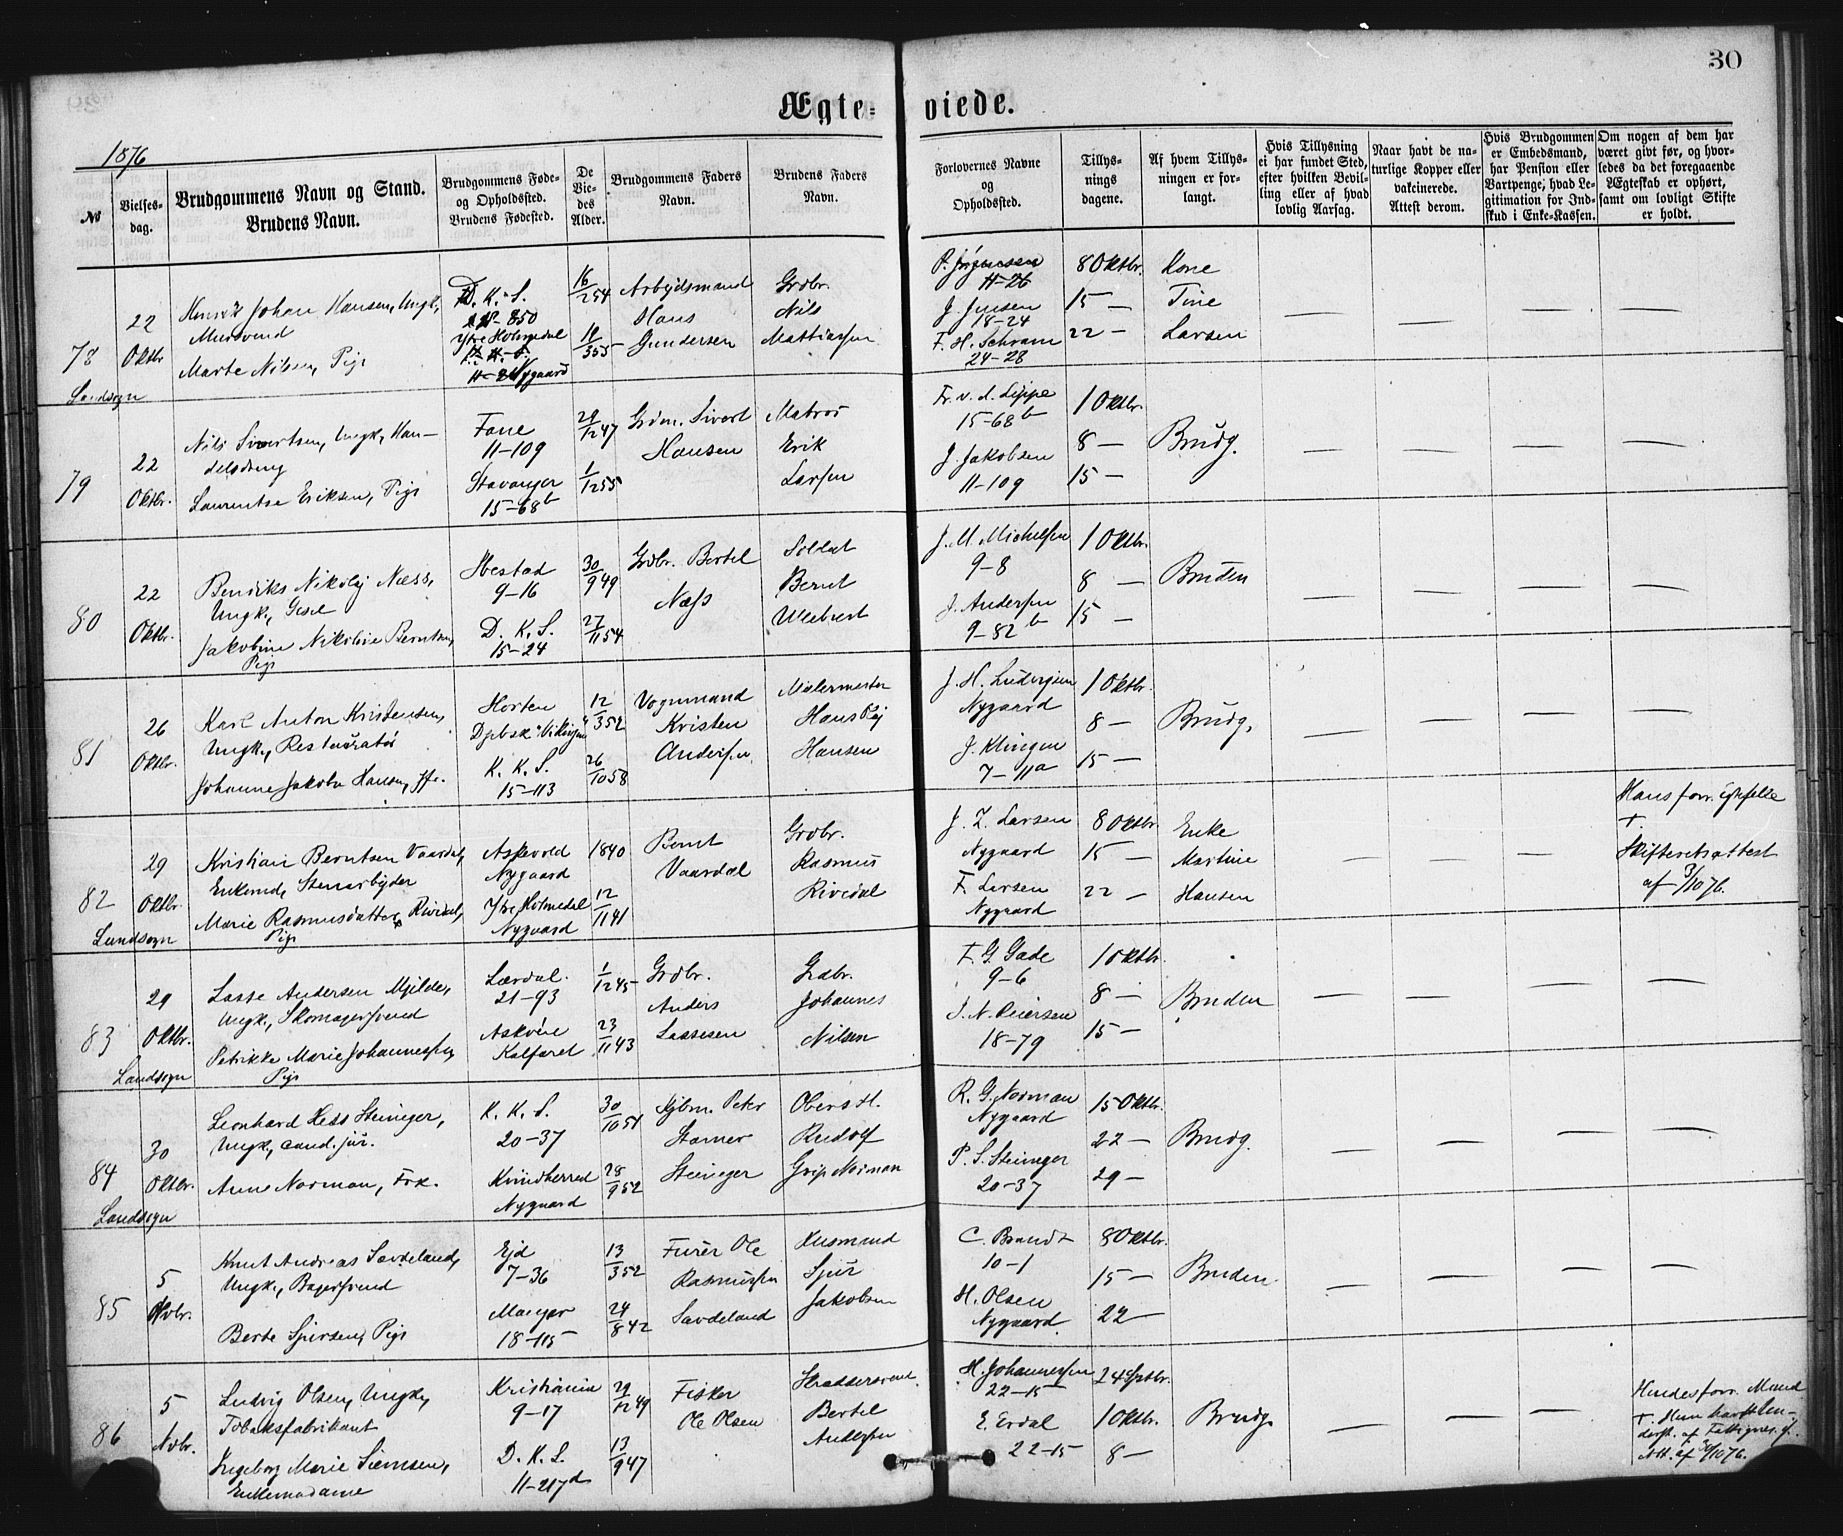 30
Ægte-
viede.
1876
No
Vielses-
dag.
Brudgommens Navn og Stand.
Brudens Navn.
Brudgommens Føde-
og Opholdssted.
Brudens Fødested.
De
Vie-
des
Alder.
Brudgommens Faders
Navn.
Brudens Faders
Navn.
Forlovernes Navne
og
Opholdssted.
Tillys-
nings
dagene.
Af hvem Tillys-
ningen er for-
langt.
Hvis Tillysning
ei har fundet Sted,
efter hvilken Bevil-
ling eller af hvad
lovlig Aarsag.
Naar havt de na-
turlige Kopper eller
vakcinerede.
Attest derom.
Hvis Brudgommen
er Embedsmand,
har Pension eller
Vartpenge, hvad Le-
gitimation for Ind-
skud i Enke-Kassen.
Om nogen af dem har
været givt før, og hvor-
ledes da det foregaaende
Ægteskab er ophørt,
samt om lovligt Skifte
er holdt.
78
Landsogn
22
Oktbr
Henrik Johan Hansen, Ungk,
Mursvend
Marte Nilsen, Pige
D. K. S.
Ytre Holmedal
Nygaard
16/2 54
18/3 55
Arbeidsmand
Hans
Gundersen
Grdbr.
Nils
Mattiassen
P. Jørgensen
11-26
J. Jensen
18-24
F. H. Schram
24-28
8 Oktbr.
15 —
22 —
Kone
Tine
Larsen
79
22
Oktbr.
Nils Sivertsen, Ungk, Han-
delsdreng
Laurentse Eriksen, Pige
Fane
11-109
Stavanger
15-68b
29/12 47
1/12 55
Grdm. Sivert
Hansen
Matros
Erik
Larsen
Fr. v. d. Lippe
15-68b
J. Jakobsen
11-109
1 Oktbr.
8 —
15 —
Brudg.
80
22
Oktbr.
Bendiks Nikolaj Næss,
Ungk, Gesel
Jakobine Nikoline Berntsen,
Pige
9-16
D. K. S.
15-24
30/9 49
27/11 54
Grdbr. Bertel
Næss
Soldat
Bernt
J. M. Michelsen
9-8
J. Andersen
9-82b
1 Oktbr.
8 —
15 —
Bruden
81
26
Oktbr.
Karl Anton Kristensen,
Ungk, Restauratør
Johanne Jakobe Hansen, Jfr.
Horten
Dpbsk. "Vikingen"
K. K. S.
15-113
12/3 52
26/10 58
Vognmand
Kristen
Andersen
Malermester
Hans
Hansen
J. H. Ludvigsen
Nygaard
J. Klingen
7-11a
1 Oktbr.
8 —
15 —
Brudg.
82
Landsogn
29
Oktbr.
Kristian Berntsen Vaardal,
Enkemd, Stenarbejder
Marie Rasmusdatter Rivedal,
Pige
Askevold
Nygaard
Ytre Holmedal
Nygaard
1840
12/11 41
Bernt
Vaardal
Grdbr.
Rasmus
Rivedal
J. Z. Larsen
Nygaard
F. Larsen
Nygaard
8 Oktbr.
15 —
22 —
Enke
Martine
Hansen
Hans forr. Egtefelle
+
Skifteretsattest
af 3/10 76.
83
Landsogn
29
Oktbr.
Lasse Andersen Mjelde,
Ungk, Skomagersvend
Petrikke Marie Johannessen,
Pige
Lærdal.
21-93
Askvøie
Kalfaret
1/12 45
23/11 43
Grdbr.
Anders
Lassesen
Grdbr.
Johannes
Nilsen
F. G. Gade
9-6
18-79
1 Oktbr.
8 —
15 —
Bruden
84
Landsogn
30
Oktbr.
Leonhard Hess Steineger,
Ungk, cand. jur.
Anne Norman, Frk.
K. K. S.
20-37
Kvindherred
Nygaard
30/10 51
28/9 52
Kjbm. Peter
Stamer
Steineger
Oberstl.
Rudolf
Grip Norman
R. G. Norman
Nygaard
P. S. Steineger
20-37
15 Oktbr.
22 —
29 —
Brudg.
85
5
Novbr.
Knut Andreas Savdeland,
Ungk, Bagersvend
Berte Sjursen, Pige
Ejd
7-36
Manger
18-115
13/3 52
24/8 42
Furer Ole
Rasmussen
Savdeland
Husmand
Sjur
Jakobsen
C. Brandt
10-1
H. Olsen
Nygaard
8 Oktbr.
15 —
22 —
Bruden
86
5
Novbr.
Ludvig Olsen, Ungk,
Tobaksfabrikant
Ingeborg Marie Siemsen,
Enkemadame
Kristiania
9-17
D. K. S.
11-217d
29/12 49
13/9 47
Fisker
Ole Olsen
Skreddersvend
Bertel
Andersen
H. Johannessen
22-15
E. Erdal
22-15
24 Septbr.
1 Oktbr.
8 —
Brudg.
Hendes forr. Mand
af Fattigves.
Att. af 3/10 76.